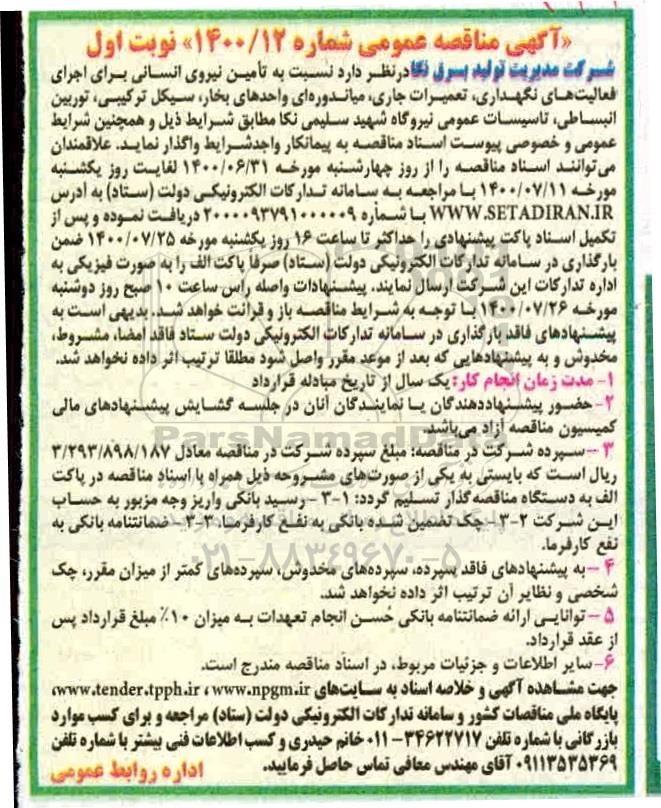 «آگهی مناقصه عمومی شماره ۱۴۰۰/۱۲» نوبت اول
شرکت مدیریت تولید برق نکا درنظر دارد نسبت به تأمین نیروی انسانی برای اجرای
فعالیت‌های نگهداری، تعمیرات جاری، میاندوره‌ای واحدهای بخار، سیکل ترکیبی، توربین
انبساطی، تاسیسات عمومی نیروگاه شهید سلیمی نکا مطابق شرایط ذیل و همچنین شرایط
عمومی و خصوصی پیوست اسناد مناقصه به پیمانکار واجدشرایط واگذار نماید. علاقمندان
می‌توانند اسناد مناقصه را از روز چهارشنبه مورخه ۱۴۰۰/۰۶/۳۱ لغایت روز یکشنبه
مورخه ۱۴۰۰/۰۷/۱۱ با مراجعه به سامانه تدارکات الکترونیکی دولت (ستاد) به آدرس
WWW.SETADIRAN.IR با شماره ۲۰۰۰۰۹۳۷۹۱۰۰۰۰۰۹ دریافت نموده و پس از
تکمیل اسناد پاکت پیشنهادی را حداکثر تا ساعت ۱۶ روز یکشنبه مورخه ۱۴۰۰/۰۷/۲۵ ضمن
بارگذاری در سامانه تدارکات الکترونیکی دولت (ستاد) صرفا پاکت الف را به صورت فیزیکی به
اداره تدارکات این شرکت ارسال نمایند. پیشنهادات واصله راس ساعت ۱۰ صبح روز دوشنبه
مورخه ۱۴۰۰/۰۷/۲۶ با توجه به شرایط مناقصه باز و قرائت خواهد شد. بدیهی است به
پیشنهادهای فاقد بارگذاری در سامانه تدارکات الکترونیکی دولت ستاد فاقد امضا، مشروط،
مخدوش و به پیشنهادهایی که بعد از موعد مقرر واصل شود مطلقا ترتیب اثر داده نخواهد شد.
۱- مدت زمان انجام کار: یک سال از تاریخ مبادله قرارداد
۲- حضور پیشنهاددهندگان یا نمایندگان آنان در جلسه گشایش پیشنهادهای مالی
کمیسیون مناقصه آزاد می‌باشد.
ParsNamadData
۳- سپرده شرکت در مناقصه: مبلغ سپرده شرکت در مناقصه معادل ۳/۲۹۳/۸۹۸/۱۸۷
ریال است که بایستی به یکی از صورت‌های مشروحه ذیل همراه با اسناد مناقصه در پاکت
الف به دستگاه مناقصه گذار تسلیم گردد: ۱-۳- رسید بانکی واریز وجه مزبور به حساب
این شرکت ۲-۳- چک تضمین شده بانکی به نفع کارفرما. ۳-۳- ضمانتنامه بانکی به
نفع کارفرما.
۰۲۱-۸۸۳۴۹۶۷۰-۵
۴- به پیشنهادهای فاقد سپرده، سپرده‌های مخدوش، سپرده‌های کمتر از میزان مقرر، چک
شخصی و نظایر آن ترتیب اثر داده نخواهد شد.
۵- توانایی ارائه ضمانتنامه بانکی حُسن انجام تعهدات به میزان ۱۰٪ مبلغ قرارداد پس
از عقد قرارداد.
۶- سایر اطلاعات و جزئیات مربوط، در اسناد مناقصه مندرج است.
جهت مشاهده آگهی و خلاصه اسناد به سایت‌های www.npgm.ir ، www.tender.tpph.ir،
پایگاه ملی مناقصات کشور و سامانه تدارکات الکترونیکی دولت (ستاد) مراجعه و برای کسب موارد
بازرگانی با شماره تلفن ۳۴۶۲۲۷۱۷-۰۱۱ خانم حیدری و کسب اطلاعات فنی بیشتر با شماره تلفن
۰۹۱۱۳۵۳۵۳۶۹ آقای مهندس معافی تماس حاصل فرمایید.
اداره روابط عمومی